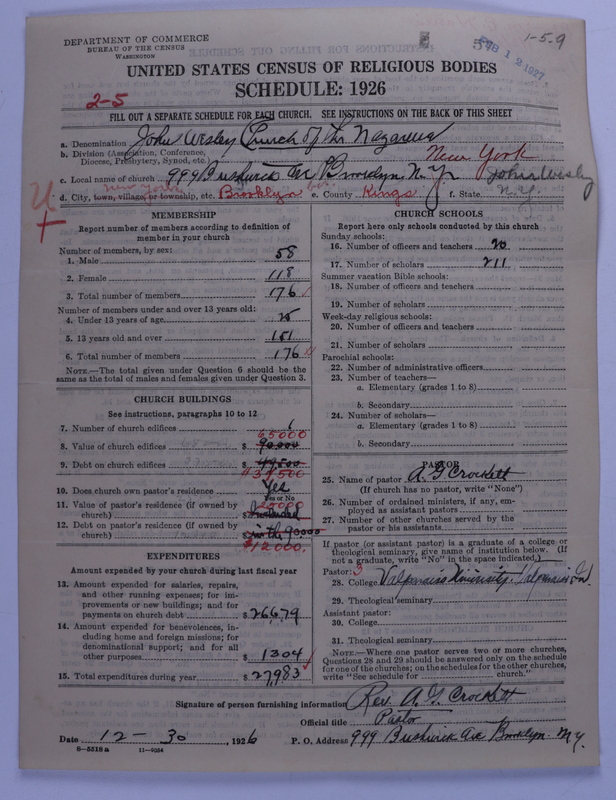 DEPARTMENT OF COMMERCE
BUREAU OF THE CENSUS
WASHINGTON
1-5-9
FEB 12 1927
UNITED STATES CENSUS OF RELIGIOUS BODIES
SCHEDULE: 1926
2-5
FILL OUT A SEPARATE SCHEDULE FOR EACH CHURCH. SEE INSTRUCTIONS ON THE BACK OF THIS SHEET
a. Denomination John Wesley Church of the Nazarene
b. Division (Association, Conference, Diocese, Presbytery, Synod, etc.) New York
c. Local name of church 999 Bushwick Ave Brooklyn, N.Y. John Wesley
d. City, town, village, or township, etc. New York Brooklyn bor. e. County Kings f. State N.Y.
MEMBERSHIP
Report number of members according to definition of
member in your church
Number of members, by sex:
1. Male 58
2. Female 118
3. Total number of members 176
Number of members under and over 13 years old:
4. Under 13 years of age 25
5. 13 years old and over 151
6. Total number of members 176
NOTE.—The total given under Question 6 should be
same as the total of males and females given under Question 3.
CHURCH BUILDINGS
See instructions, paragraphs 10 to 12
7. Number of church edifices 1
65000
8. Value of church edifices $ 90,000
9. Debt on church edifices $ 49,500
$37,500
10. Does church own pastor's residence Yes
Yes or No
11. Value of pastor's residence (if owned by
church) $ included
12. Debt on pastor's residence (if owned by
church) in the 90000
$12000.
EXPENDITURES
Amount expended by your church during last fiscal year
13. Amount expended for salaries, repairs,
and other running expenses; for im-
provements or new buildings; and for
payments on church debt $ 26679
14. Amount expended for benevolences, in-
cluding home and foreign missions; for
denominational support; and for all
other purposes $ 1304
15. Total expenditures during year $ 27,983
CHURCH SCHOOLS
Report here only schools conducted by this church
Sunday schools:
16. Number of officers and teachers 20
17. Number of scholars 211
Summer vacation Bible schools:
18. Number of officers and teachers
19. Number of scholars
Week-day religious schools:
20. Number of officers and teachers
21. Number of scholars
Parochial schools:
22. Number of administrative officers
23. Number of teachers—
a. Elementary (grades 1 to 8)
b. Secondary
24. Number of scholars—
a. Elementary (grades 1 to 8)
b. Secondary
PASTOR
25. Name of pastor A. G. Crockett
(If church has no pastor, write "None")
26. Number of ordained ministers, if any, em-
ployed as assistant pastors
27. Number of other churches served by the
pastor or his assistants
If pastor (or assistant pastor) is a graduate of a college or
theological seminary, give name of institution below. (If
not a graduate, write "No" in the space indicated.)
Pastor: 3
28. College Valparaiso University. Valparaiso Ind.
29. Theological seminary
Assistant pastor:
30. College
31. Theological seminary
NOTE.—Where one pastor serves two or more churches,
Questions 28 and 29 should be answered only on the schedule
for one of the churches; on the schedules for the other churches,
write "See schedule for church."
Signature of person furnishing information Rev. A. G. Crockett
Official title Pastor
Date 12 - 30, 1926 P. O. Address 999 Bushwick Ave Brooklyn. N.Y.
8—5518 a 11—9554